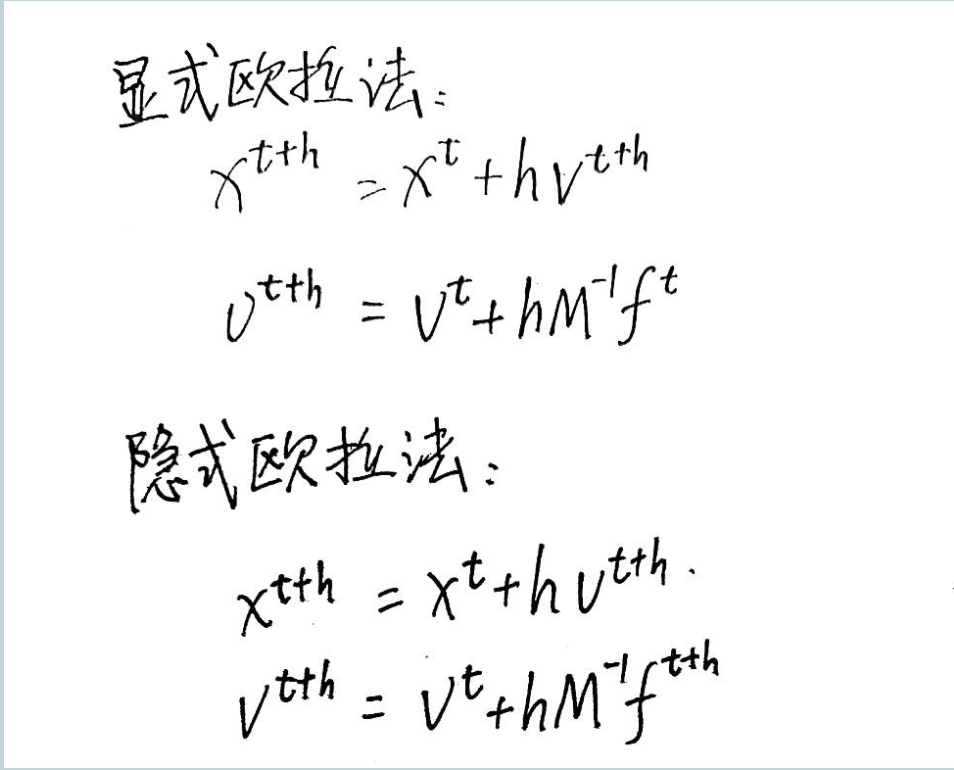 显式欧拉法:
x^{t+h} = x^t + hv^{t+h}
v^{t+h} = v^t + hM^{-1}f^t
隐式欧拉法:
x^{t+h} = x^t + hv^{t+h}.
v^{t+h} = v^t + hM^{-1}f^{t+h}